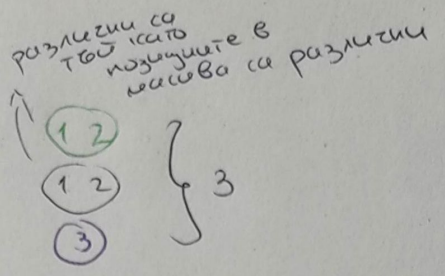 различни са
тъй като
позициите в
масива са различни
1 2
1 2
3
3